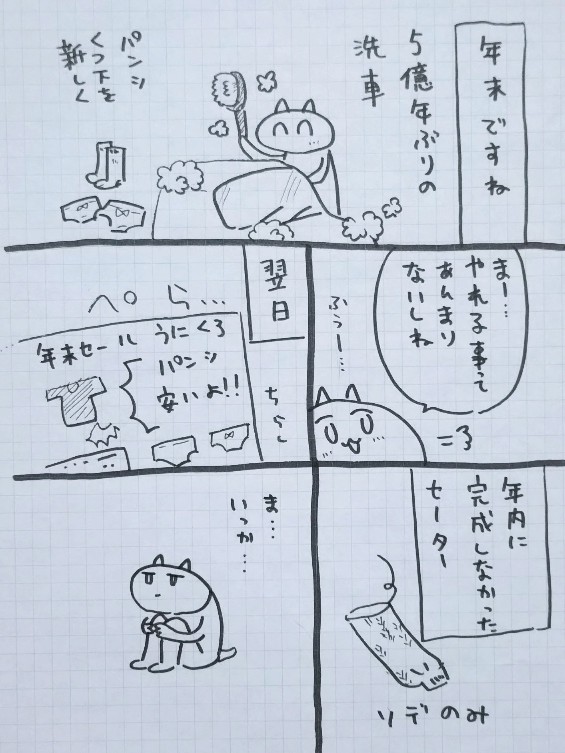 年末ですね
5億年ぶりの
洗車
パンツ
くつ下を
新しく
まー…
やれる事って
あんまり
ないしね
ふぅー…
翌日
ちらし
ペら…
年末セール
うにくろ
パンツ
安いよ!!
年内に
完成しなかった
セーター
ソデのみ
ま…
いっか…